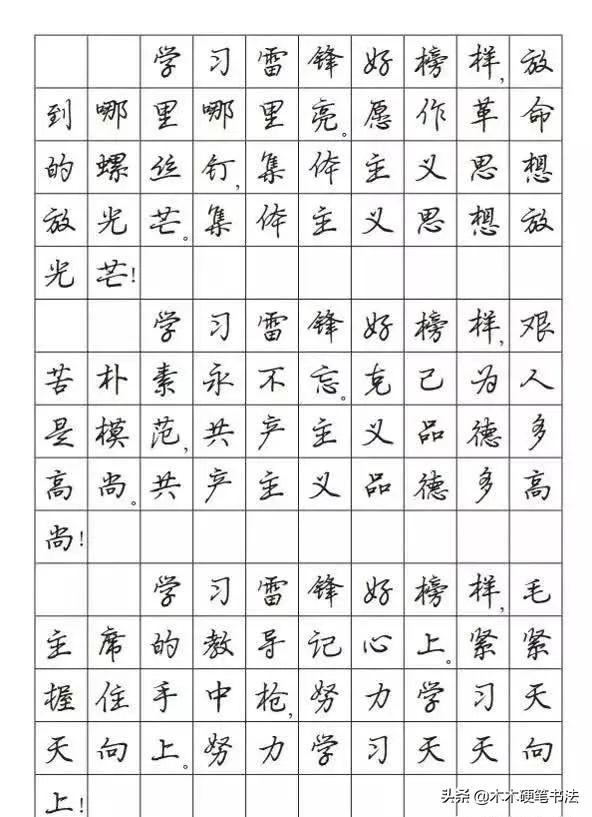 学习雷锋好榜样,放
到哪里哪里亮。愿作革命
的螺丝钉,集体主义思想
放光芒。集体主义思想放
光芒!
学习雷锋好榜样,艰
苦朴素永不忘。克己为人
是模范,共产主义品德多
高尚。共产主义品德多高
尚!
学习雷锋好榜样,毛
主席的教导记心上。紧紧
握住手中枪,努力学习天
天向上。努力学习天天向
上!
头条 @木木硬笔书法